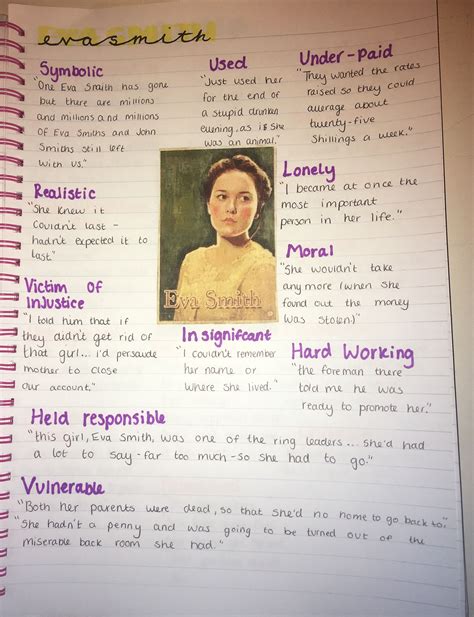 eva smith
Symbolic
"One Eva Smith has gone
but there are millions
and millions and millions
of Eva Smiths and John
Smiths still left
with us."
Used
"Just used her
for the end of
a stupid drunken
evening, as if she
was an animal."
Under-paid
"They wanted the rates
raised so they could
average about
twenty-five
Shillings a week."
Realistic
"She knew it
couldn't last -
hadn't expected it to
last."
Eva Smith
Lonely
"I became at once the
most important
person in her life."
Moral
"She wouldn't take
any more (when she
found out the money
was stolen)"
Victim of
Injustice
"I told him that if
they didn't get rid of
that girl... i'd persuade
mother to close
our account."
Insignifcant
"I couldn't remember
her name or
where she lived."
Hard Working
"the foreman there
told me he was
ready to promote her."
Held responsible
"this girl, Eva Smith, was one of the ring leaders... she'd had
a lot to say - far too much - so she had to go."
Vulnerable
"Both her parents were dead, so that she'd no home to go back to."
"She hadn't a penny and was going to be turned out of the
miserable back room she had."